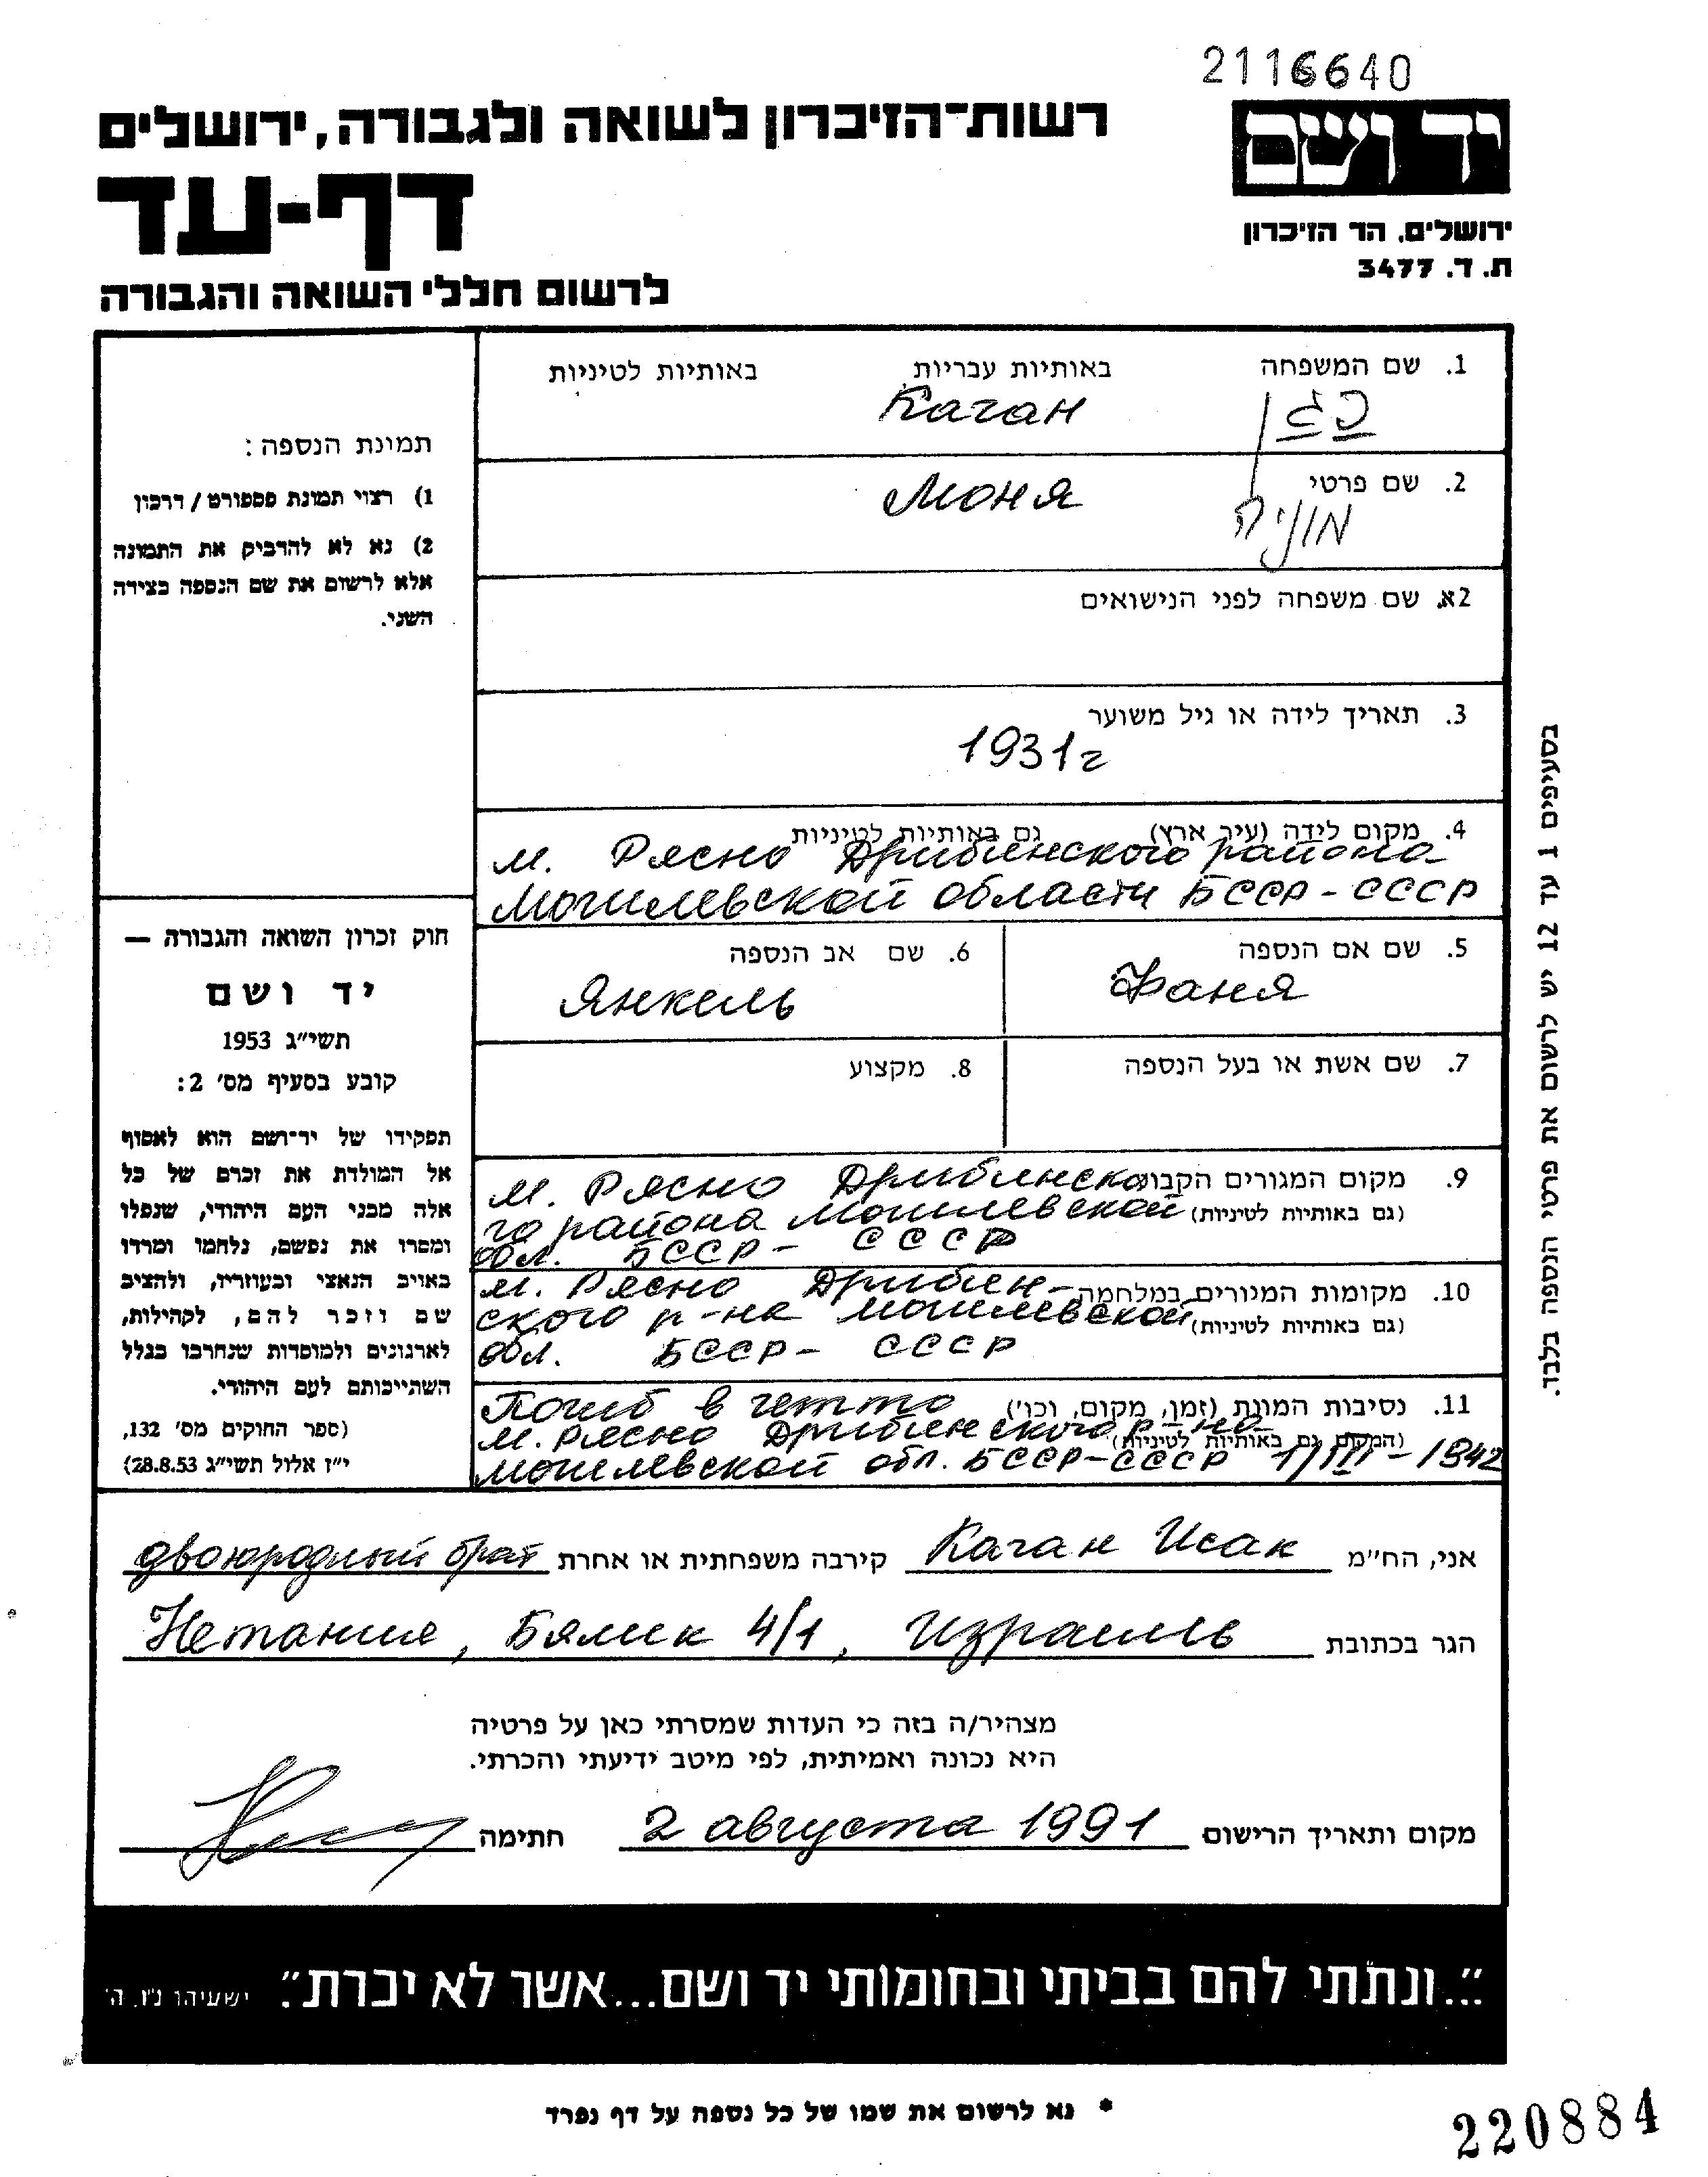 2116640
יד ושם
רשות־הזיכרון לשואה ולגבורה, ירושלים
דף-עד
ירושלים, הר הזיכרון
ת. ד. 3477
לרשום חללי השואה והגבורה
1. שם המשפחה באותיות עבריות באותיות לטיניות
כגן Каган
2. שם פרטי
מוניה Моня
2א. שם משפחה לפני הנישואים
3. תאריך לידה או גיל משוער
1931 г
4. מקום לידה (עיר, ארץ) גם באותיות לטיניות
м. Рясно Дрибинского района
Могилевской области БССР - СССР
5. שם אם הנספה
Фаня
6. שם אב הנספה
Янкель
7. שם אשת או בעל הנספה
8. מקצוע
9. מקום המגורים הקבוע
(גם באותיות לטיניות)
м. Рясно Дрибинско
го района Могилевской
обл. БССР - СССР
10. מקומות המגורים במלחמה
(גם באותיות לטיניות)
м. Рясно Дрибин-
ского р-на Могилевской
обл. БССР - СССР
11. נסיבות המוות (זמן, מקום, וכו')
(המקום גם באותיות לטיניות)
Погиб в гетто
м. Рясно Дрибинского р-на
Могилевской обл. БССР-СССР 1/III - 1942
תמונת הנספה:
1) רצוי תמונת פספורט / דרכון
2) נא לא להדביק את התמונה
אלא לרשום את שם הנספה בצידה
השני.
חוק זכרון השואה והגבורה —
יד ושם
תשי״ג 1953
קובע בסעיף מס׳ 2:
תפקידו של יד־ושם הוא לאסוף
אל המולדת את זכרם של כל
אלה מבני העם היהודי, שנפלו
ומסרו את נפשם, נלחמו ומרדו
באויב הנאצי ובעוזריו, ולהציב
שם וזכר להם, לקהילות,
לארגונים ולמוסדות שנחרבו בגלל
השתייכותם לעם היהודי.
(ספר החוקים מס׳ 132,
י״ז אלול תשי״ג 28.8.53)
בסעיפים 1 עד 12 יש לרשום את פרטי הנספה בלבד.
אני, הח״מ Каган Исак קירבה משפחתית או אחרת двоюродный брат
הגר בכתובת Нетание, Бялик 4/1, Израиль
מצהיר/ה בזה כי העדות שמסרתי כאן על פרטיה
היא נכונה ואמיתית, לפי מיטב ידיעתי והכרתי.
מקום ותאריך הרישום 2 августа 1991 חתימה
״...ונתתי להם בביתי ובחומותי יד ושם...אשר לא יכרת״. ישעיהו נ״ו, ה׳
* נא לרשום את שמו של כל נספה על דף נפרד
220884